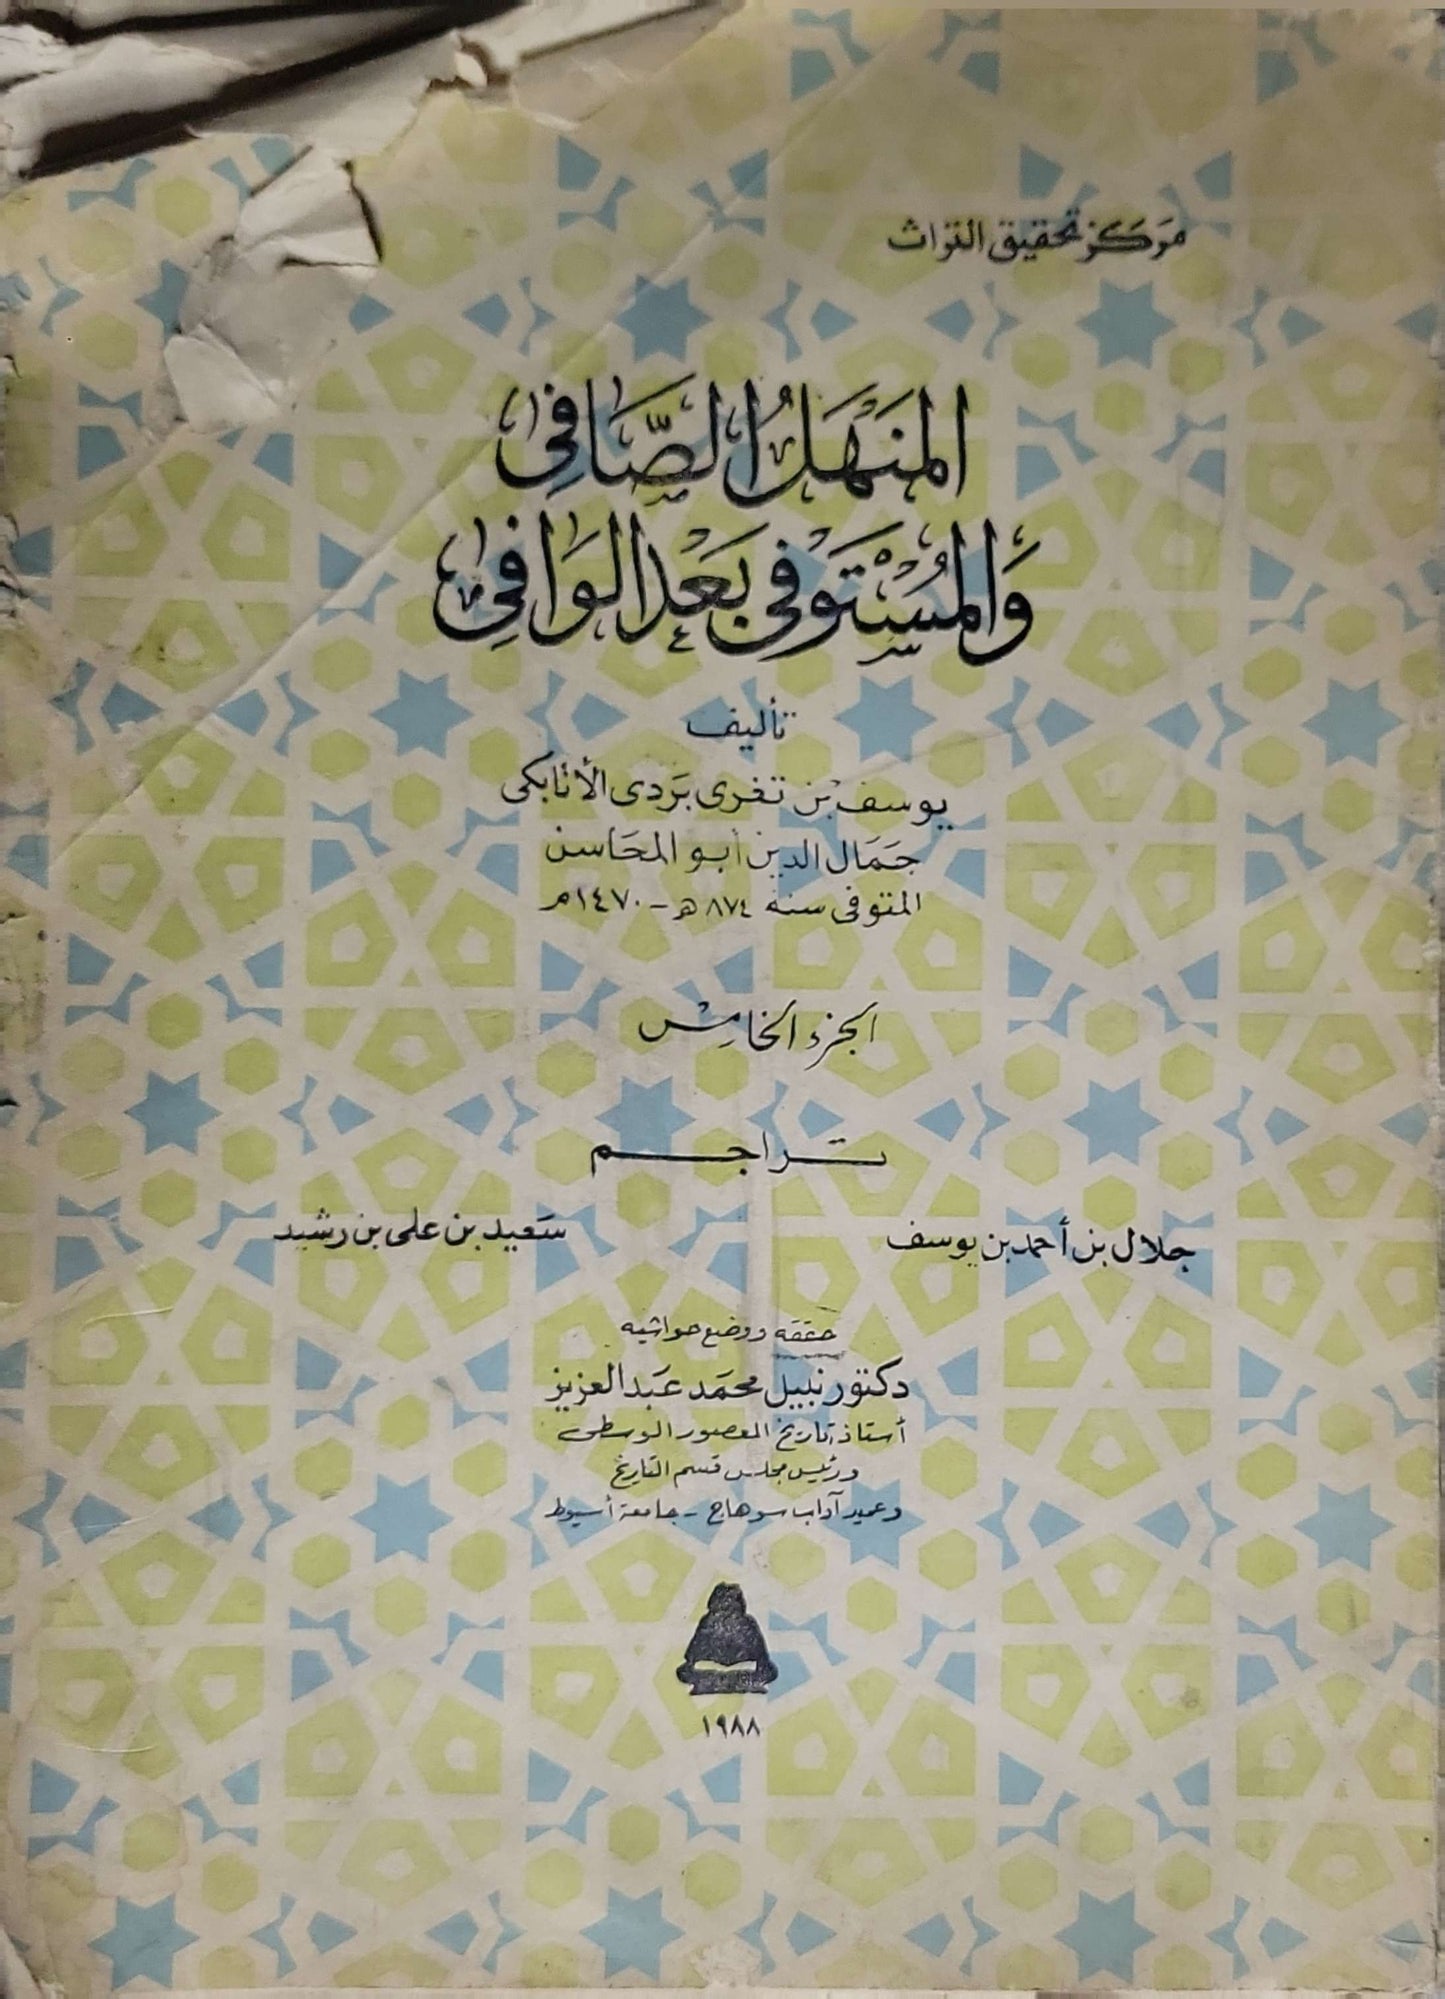 مركز تحقيق التراث
المنهَلُ الصَّافِى
وَالمُسْتَوْفى بَعْدَ الوَافِى
تأليف
يوسف بْن تغرى بَردى الأتابكى
جَمَال الدين أبو المحَاسن
المتوفى سنة ٨٧٤هـ - ١٤٧٠م
الجزء الخامِسْ
تراجم
جلال بن أحمد بن يوسف
سَعيد بن على بن رشيد
حققه ووضع حواشيه
دكتور نبيل محمَد عَبد العزيز
أستاذ تاريخ العصور الوسطى
ورئيس مجلس قسم التاريخ
وعميد آداب سوهاج - جامعة أسيوط
١٩٨٨